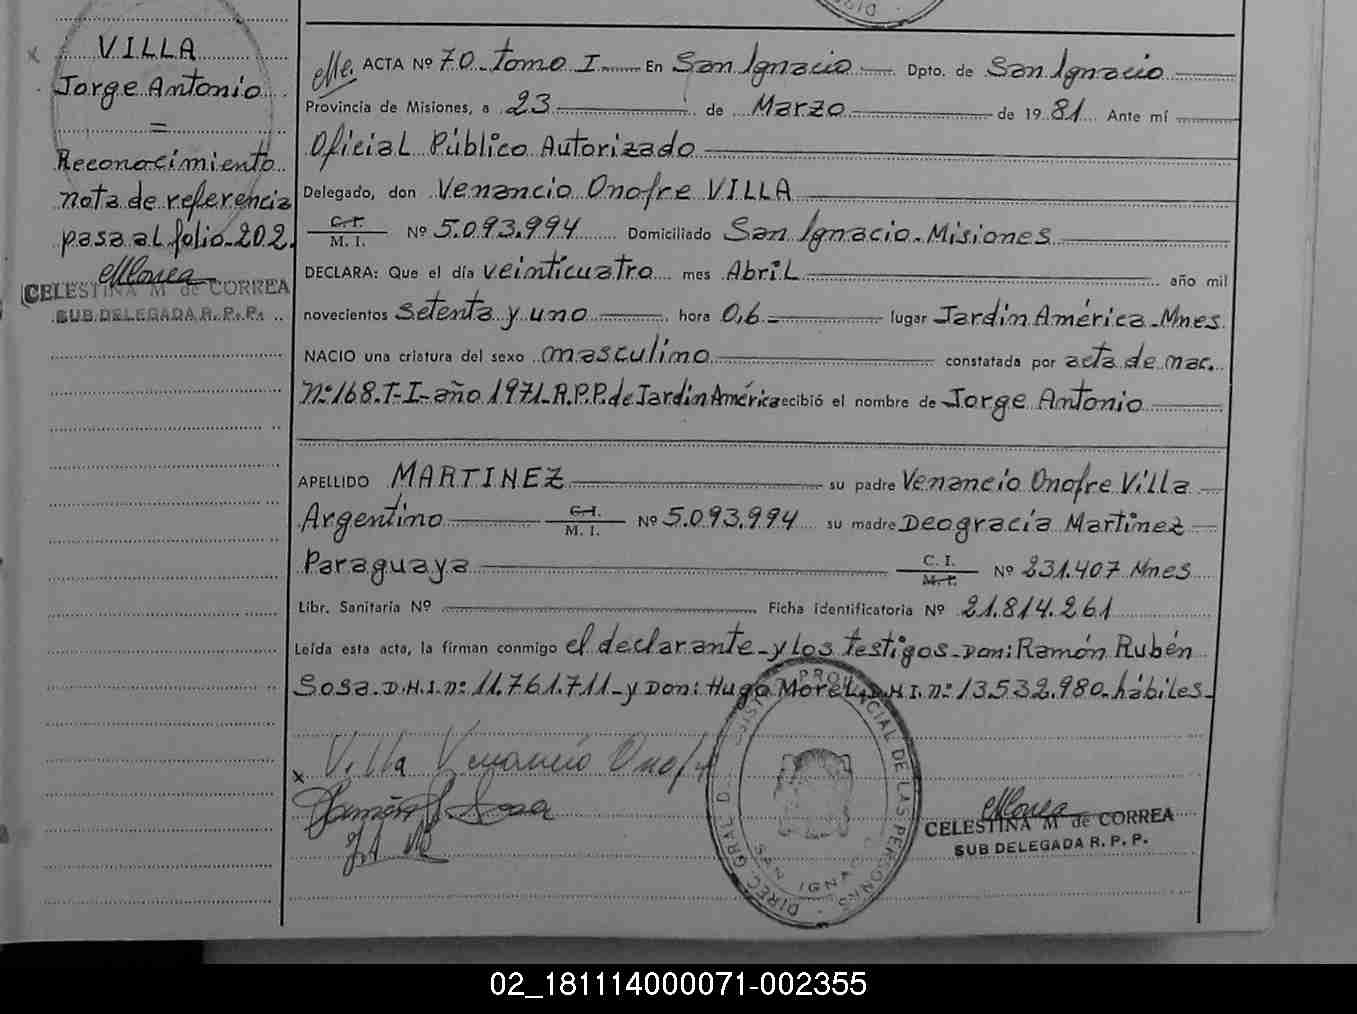 VILLA
Jorge Antonio
=
Reconocimiento
nota de referencia
pasa al folio-202.
CELESTINA M de CORREA
SUB DELEGADA R. P. P.
ACTA Nº 70 - tomo I En San Ignacio Dpto. de San Ignacio
Provincia de Misiones, a 23 de Marzo de 1981 Ante mí
Oficial Público Autorizado
Delegado, don Venancio Onofre VILLA
C. I. M. I. Nº 5.093.994 Domiciliado San Ignacio - Misiones
DECLARA: Que el día veinticuatro mes Abril año mil
novecientos setenta y uno hora 0,6 - lugar Jardín América - Mnes
NACIO una criatura del sexo masculino constatada por acta de nac.
Nº 168.T-I-año 1971-R.P.P. de Jardín América recibió el nombre de Jorge Antonio
APELLIDO MARTINEZ su padre Venancio Onofre Villa
Argentino C. I. M. I. Nº 5.093.994 su madre Deogracia Martinez
Paraguaya C. I. M. I. Nº 231.407 Mnes
Libr. Sanitaria Nº Ficha identificatoria Nº 21.814.261
Leída esta acta, la firman conmigo el declarante - y los testigos - Don: Ramón Rubén
Sosa - D.N.I. nº 11.761.711 - y Don: Hugo Morel - D.N.I. nº 13.532.980 - hábiles -
x Villa Venancio Onofr
DIREC. GRAL D. REGISTRO PROVINCIAL DE LAS PERSONAS
SAN IGNACIO
CELESTINA M de CORREA
SUB DELEGADA R. P. P.
02_181114000071-002355